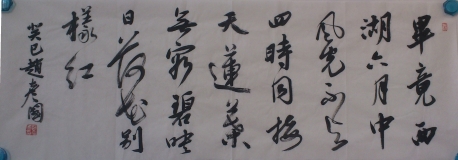 畢竟西
湖六月中
風光不与
四時同接
天蓮葉
無窮碧映
日荷花别
樣紅
癸巳趙